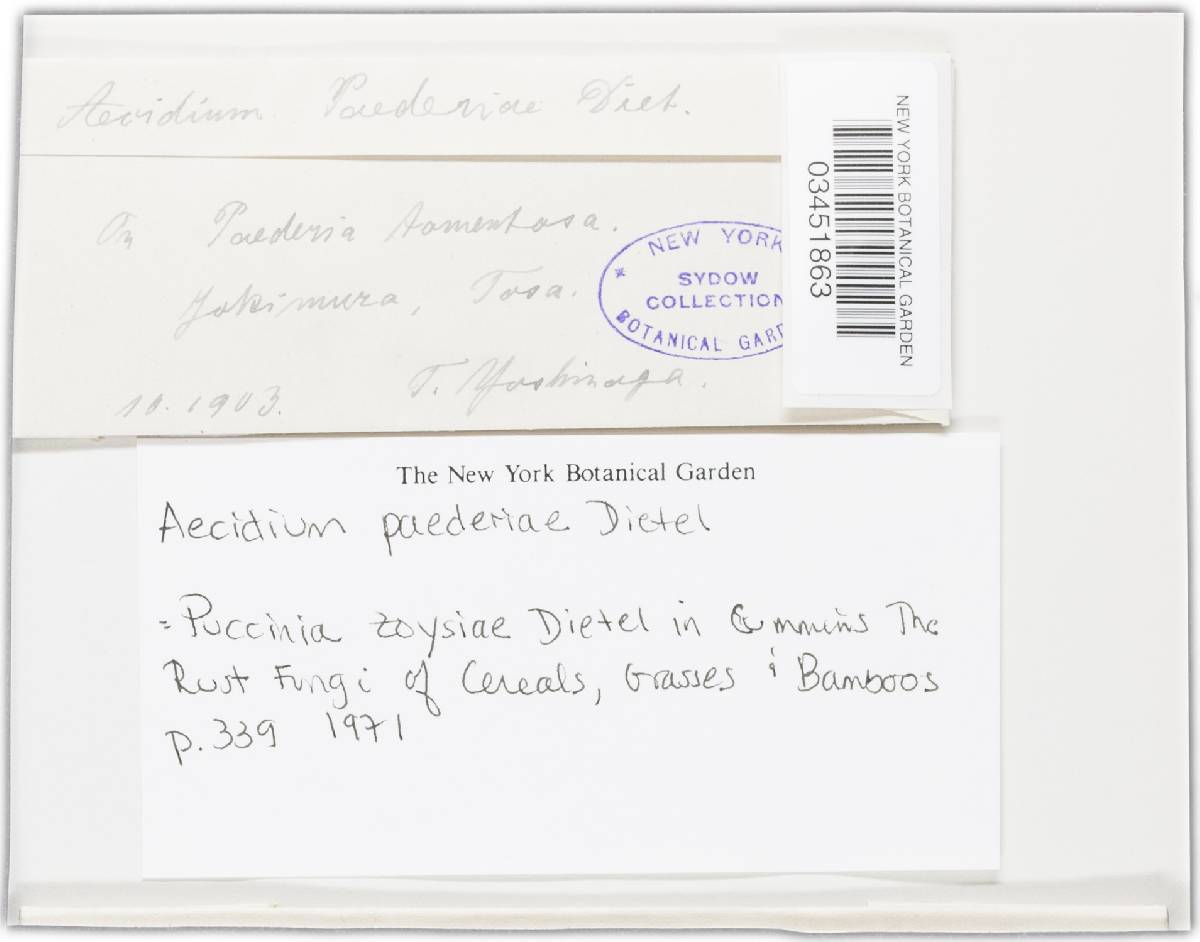 Aecidium Paederiae Diet.
On Paederia tomentosa.
Yokimura, Tosa.
10. 1903. T. Yoshinaga.
NEW YORK
SYDOW
COLLECTION
BOTANICAL GARD
NEW YORK BOTANICAL GARDEN
03451863
The New York Botanical Garden
Aecidium paederiae Dietel
= Puccinia zoysiae Dietel in Cummins The
Rust Fungi of Cereals, Grasses & Bamboos
p. 339 1971